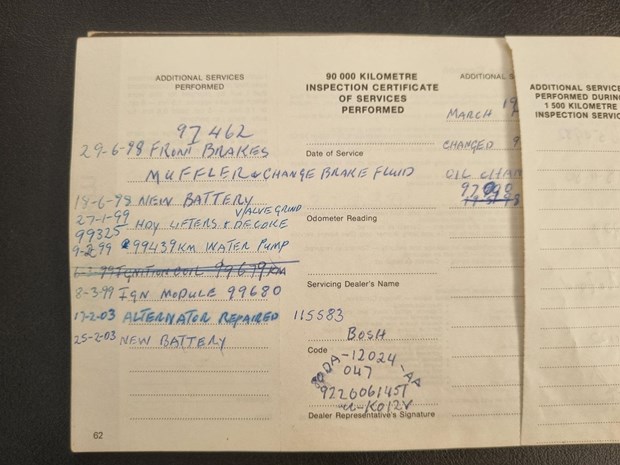 ADDITIONAL SERVICES
PERFORMED
97462
29-6-98 FRONT BRAKES
MUFFLER & CHANGE BRAKE FLUID
18-6-98 NEW BATTERY
VALVE GRIND
27-1-99 HDY LIFTERS & DECOKE
99325
9-2-99 99439KM WATER PUMP
6-3-99 IGNITION COIL 99679KM
8-3-99 IGN MODULE 99680
17-2-03 ALTERNATOR REPAIRED 115583
25-2-03 NEW BATTERY
62
90 000 KILOMETRE
INSPECTION CERTIFICATE
OF SERVICES
PERFORMED
Date of Service
Odometer Reading
Servicing Dealer's Name
BOSH
Code
DA-12024-AA
047
9220061451
Dealer Representative's Signature
ADDITIONAL S
MARCH 19
CHANGED 9
OIL CHAN
97090
ADDITIONAL SERVICE
PERFORMED DURIN
1 500 KILOMETRE
INSPECTION SERVIC